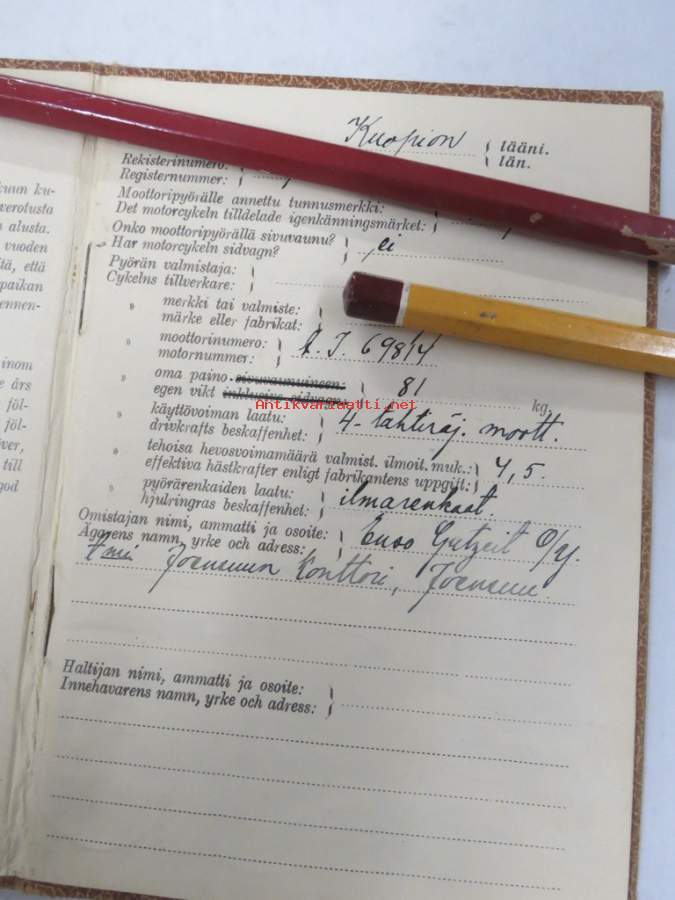 Kuopion lääni.
län.
Rekisterinumero:
Registernummer:
Moottoripyörälle annettu tunnusmerkki:
Det motorcykeln tilldelade igenkänningsmärket:
Onko moottoripyörällä sivuvaunu?
Har motorcykeln sidvagn?
ei
Pyörän valmistaja:
Cykelns tillverkare:
„ merkki tai valmiste:
märke eller fabrikat:
„ moottorinumero:
motornummer:
69814
„ oma paino sivuvaunuineen:
egen vikt inklusive sidvagn:
81 kg.
„ käyttövoiman laatu:
drivkrafts beskaffenhet:
4-tahtiräj. moott.
„ tehoisa hevosvoimamäärä valmist. ilmoit. muk.:
effektiva hästkrafter enligt fabrikantens uppgift:
4,5.
„ pyörärenkaiden laatu:
hjulringras beskaffenhet:
ilmarenkaat.
Omistajan nimi, ammatti ja osoite:
Ägarens namn, yrke och adress:
Enso Gutzeit O/Y.
Joensuun Konttori, Joensuu.
Haltijan nimi, ammatti ja osoite:
Innehavarens namn, yrke och adress:
kuun ku-
verotusta
alusta.
vuoden
tä, että
paikan
ennen-
inom
års
föl-
föl-
ver,
till
god
Antikvariaatti.net